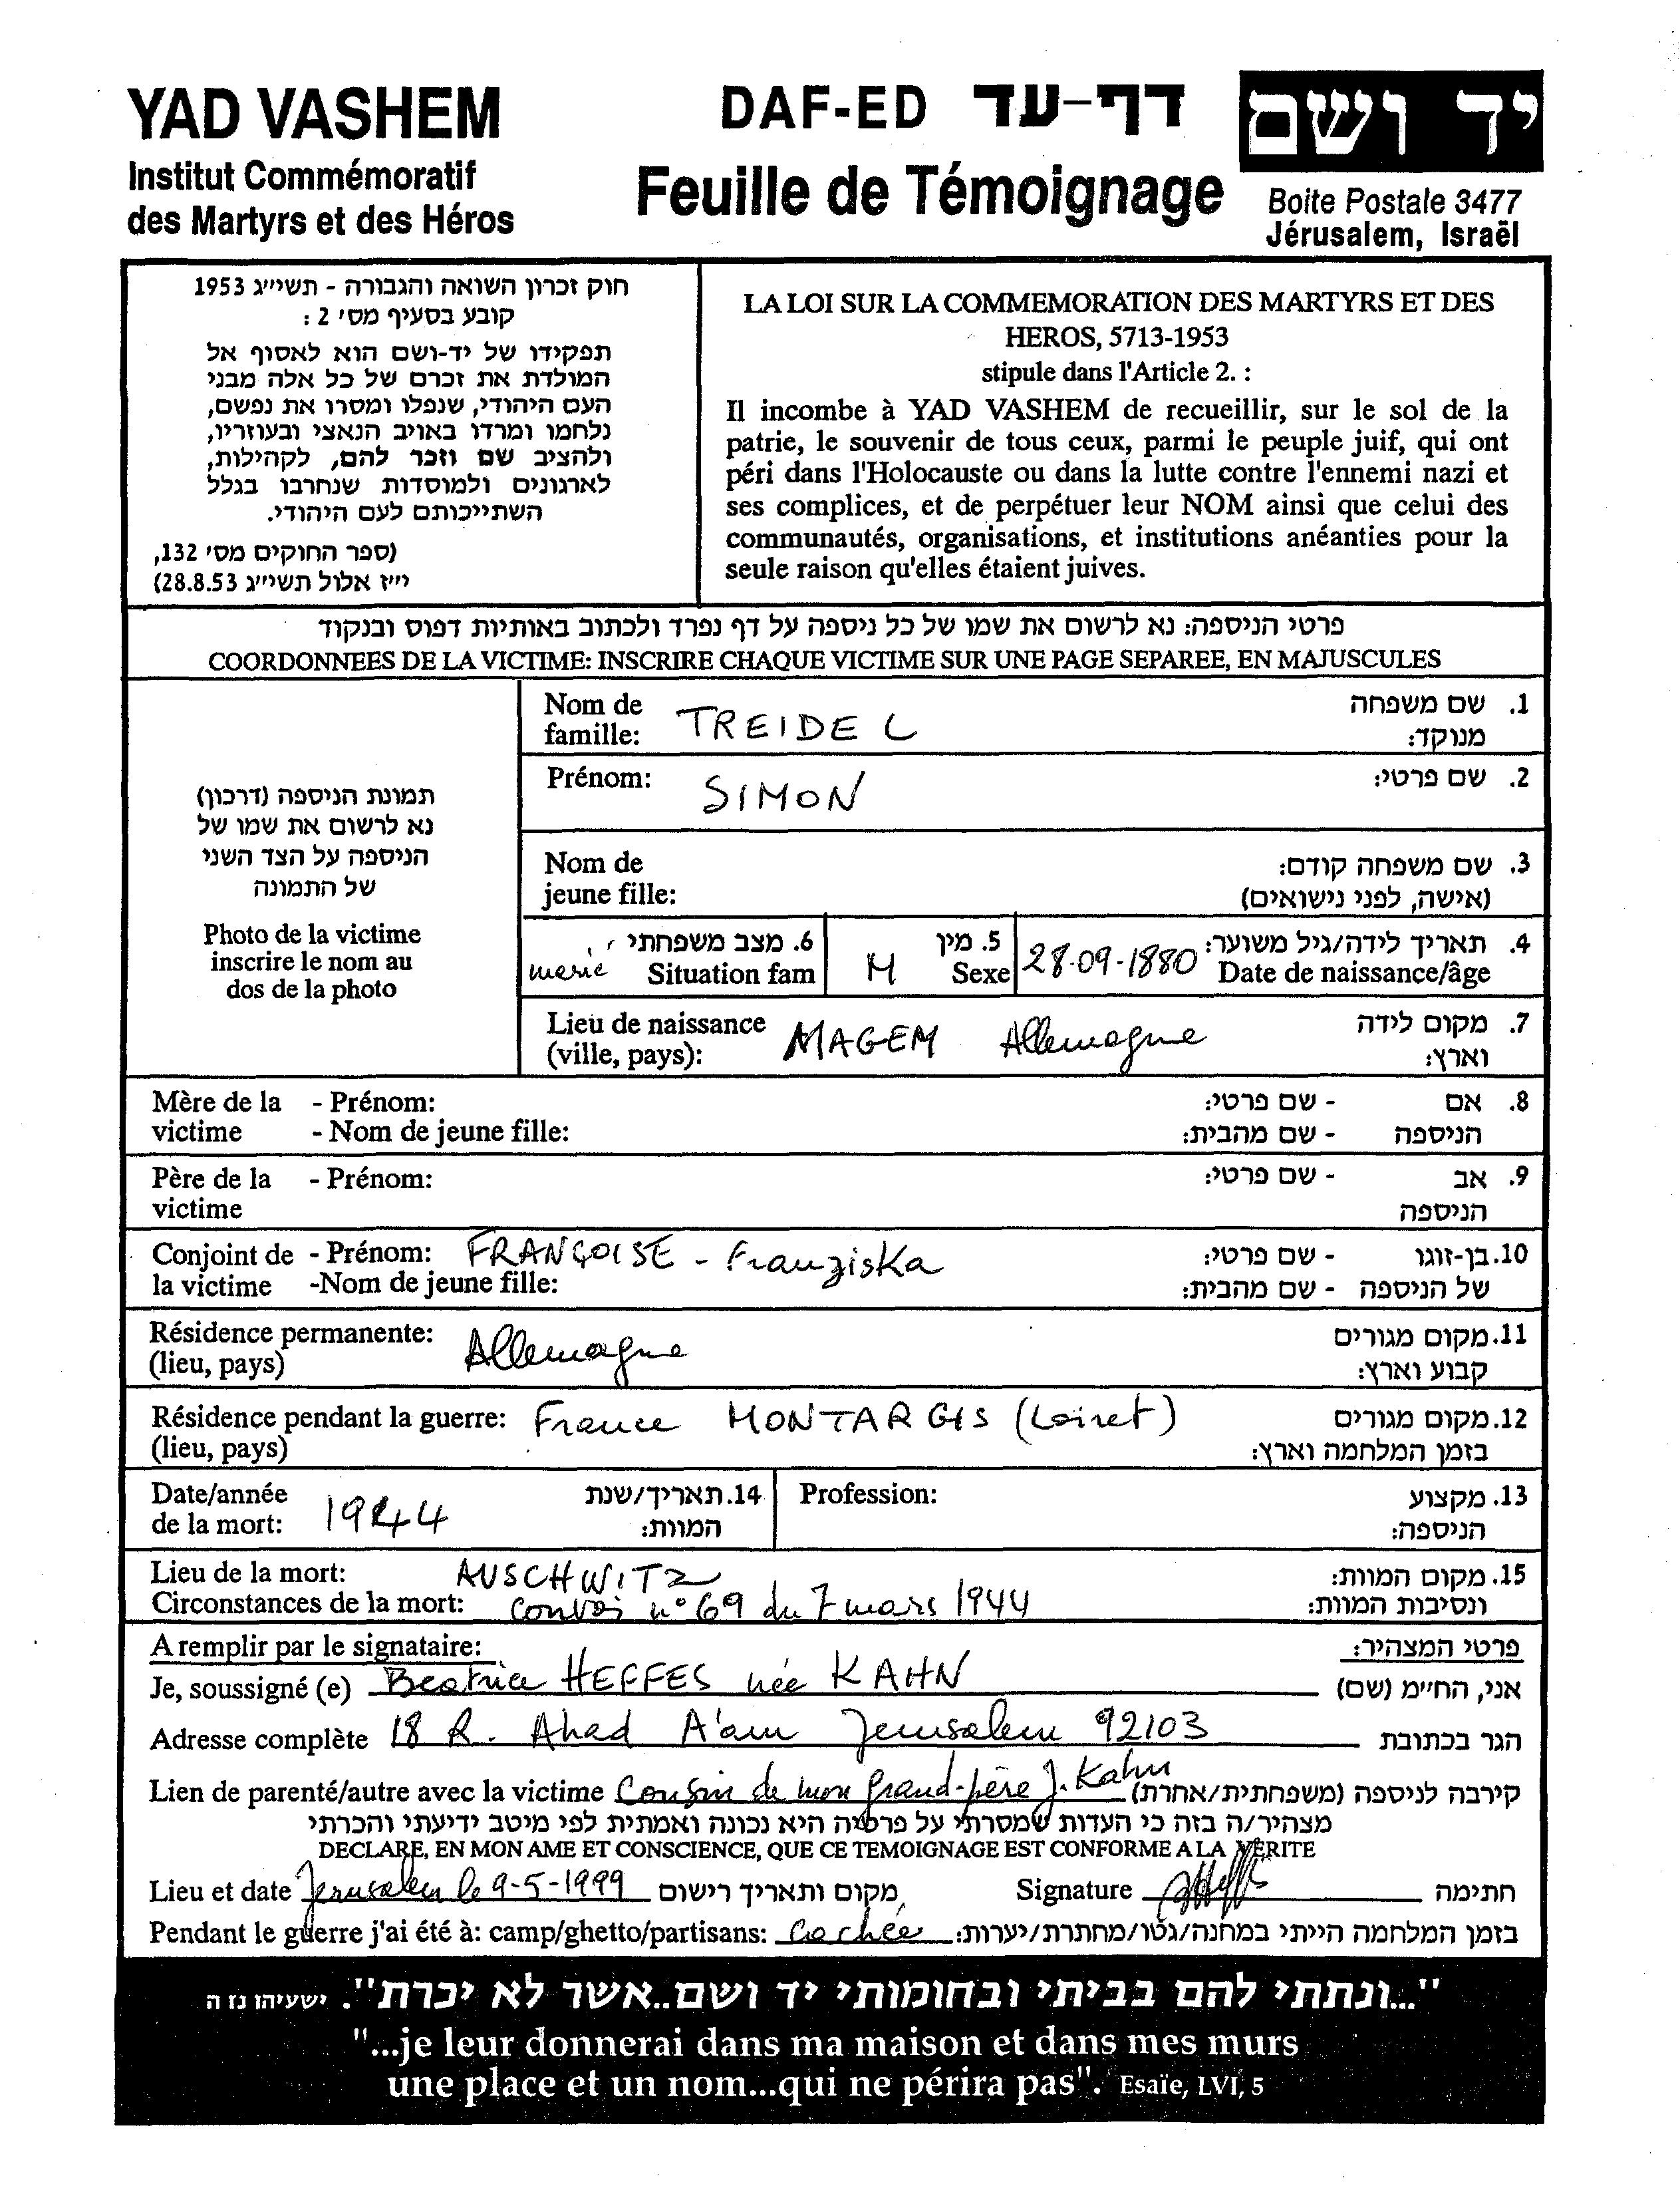 YAD VASHEM
Institut Commémoratif
des Martyrs et des Héros
DAF-ED דף-עד
Feuille de Témoignage
יד ושם
Boite Postale 3477
Jérusalem, Israël
חוק זכרון השואה והגבורה - תשי״ג 1953
קובע בסעיף מס׳ 2 :
תפקידו של יד-ושם הוא לאסוף אל
המולדת את זכרם של כל אלה מבני
העם היהודי, שנפלו ומסרו את נפשם,
נלחמו ומרדו באויב הנאצי ובעוזריו,
ולהציב שם וזכר להם, לקהילות,
לארגונים ולמוסדות שנחרבו בגלל
השתייכותם לעם היהודי.
(ספר החוקים מס׳ 132,
י״ז אלול תשי״ג 28.8.53)
LA LOI SUR LA COMMEMORATION DES MARTYRS ET DES
HEROS, 5713-1953
stipule dans l'Article 2. :
Il incombe à YAD VASHEM de recueillir, sur le sol de la
patrie, le souvenir de tous ceux, parmi le peuple juif, qui ont
péri dans l'Holocauste ou dans la lutte contre l'ennemi nazi et
ses complices, et de perpétuer leur NOM ainsi que celui des
communautés, organisations, et institutions anéanties pour la
seule raison qu'elles étaient juives.
פרטי הניספה: נא לרשום את שמו של כל ניספה על דף נפרד ולכתוב באותיות דפוס ובנקוד
COORDONNEES DE LA VICTIME: INSCRIRE CHAQUE VICTIME SUR UNE PAGE SEPAREE, EN MAJUSCULES
תמונת הניספה (דרכון)
נא לרשום את שמו של
הניספה על הצד השני
של התמונה
Photo de la victime
inscrire le nom au
dos de la photo
Nom de famille: TREIDEL 1. שם משפחה מנוקד:
Prénom: SIMON 2. שם פרטי:
Nom de jeune fille: 3. שם משפחה קודם:
(אישה, לפני נישואים)
marié 6. מצב משפחתי Situation fam M 5. מין Sexe 28-09-1880 4. תאריך לידה/גיל משוער: Date de naissance/âge
Lieu de naissance (ville, pays): MAGEM Allemagne 7. מקום לידה וארץ:
Mère de la - Prénom: - שם פרטי: 8. אם
victime - Nom de jeune fille: - שם מהבית: הניספה
Père de la - Prénom: - שם פרטי: 9. אב
victime הניספה
Conjoint de - Prénom: FRANÇOISE - Franziska - שם פרטי: 10. בן-זוגו
la victime -Nom de jeune fille: - שם מהבית: של הניספה
Résidence permanente: Allemagne 11. מקום מגורים
(lieu, pays) קבוע וארץ:
Résidence pendant la guerre: France MONTARGIS (Loiret) 12. מקום מגורים
(lieu, pays) בזמן המלחמה וארץ:
Date/année de la mort: 1944 14. תאריך/שנת המוות: Profession: 13. מקצוע הניספה:
Lieu de la mort: AUSCHWITZ 15. מקום המוות:
Circonstances de la mort: Convoi n° 69 du 7 mars 1944 ונסיבות המוות:
A remplir par le signataire: פרטי המצהיר:
Je, soussigné (e) Beatrice HEFFES née KAHN אני, החיימ (שם)
Adresse complète 18 R. Ahad A'am Jerusalem 92103 הגר בכתובת
Lien de parenté/autre avec la victime Cousin de mon grand-père J. Kahn קירבה לניספה (משפחתית/אחרת)
מצהיר/ה בזה כי העדות שמסרתי על פרטיה היא נכונה ואמתית לפי מיטב ידיעתי והכרתי
DECLARE, EN MON AME ET CONSCIENCE, QUE CE TEMOIGNAGE EST CONFORME A LA VERITE
Lieu et date Jerusalem le 9-5-1999 מקום ותאריך רישום Signature חתימה
Pendant le guerre j'ai été à: camp/ghetto/partisans: Cachée בזמן המלחמה הייתי במחנה/גטו/מחתרת/יערות:
"...ונתתי להם בביתי ובחומותי יד ושם..אשר לא יכרת". ישעיהו נז ה
"...je leur donnerai dans ma maison et dans mes murs
une place et un nom...qui ne périra pas". Esaïe, LVI, 5